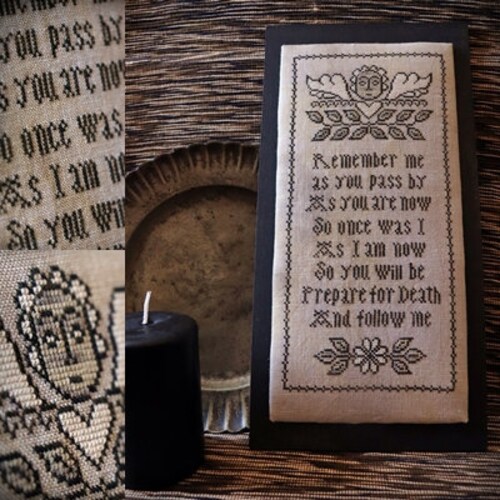 you pass by
s you are now
o once was
As I am no
So you will
Remember me
as you pass by
As you are now
So once was I
As I am now
So you will be
Prepare for Death
And follow me